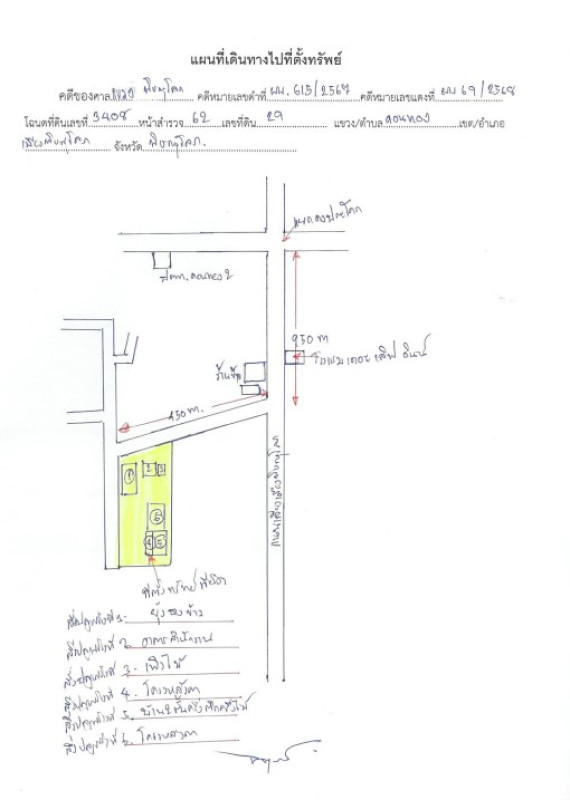 แผนที่เดินทางไปที่ตั้งทรัพย์
คดีของศาลแขวง พิษณุโลก คดีหมายเลขดำที่ ผบ. 615/2567 คดีหมายเลขแดงที่ ผบ 69/2568
โฉนดที่ดินเลขที่ 3408 หน้าสำรวจ 62 เลขที่ดิน 29 แขวง/ตำบล ดอนทอง เขต/อำเภอ
เมืองพิษณุโลก จังหวัด พิษณุโลก.
ดอนทอง 2
950 m
ร้านซ่อม
450 m.
1
2
3
6
4
5
ที่ตั้งทรัพย์ที่ยึด
สิ่งปลูกสร้างที่ 1. ยุ้งฉางข้าว
สิ่งปลูกสร้างที่ 2. อาคารสำนักงาน
สิ่งปลูกสร้างที่ 3. เพิงไม้
สิ่งปลูกสร้างที่ 4. โครงหลังคา
สิ่งปลูกสร้างที่ 5. บ้าน 2 ชั้นครึ่งตึกครึ่งไม้
สิ่งปลูกสร้างที่ 6. โครงหลังคา